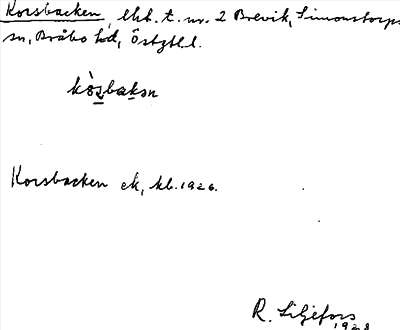 Korsbacken, lht. t. nr. 2 Brevik, Simonstorps
sn, Bråbo hd, Östgtl l.
kòsbakən
Korsbacken ek, kb. 1926.
R. Liljefors
1928